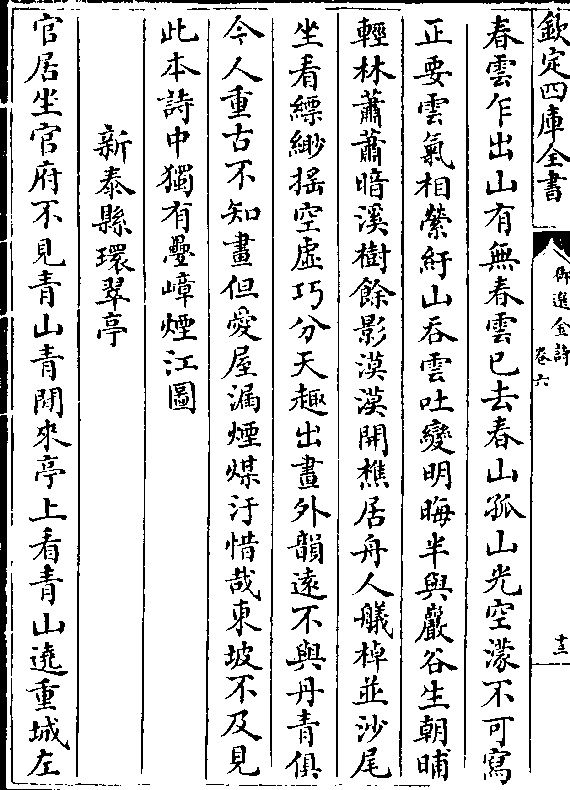 欽定四庫全書
御選金詩
卷六
十三
春雲乍出山有無春雲已去春山孤山光空濛不可寫
正要雲氣相縈紆山吞雲吐變明晦半與巖谷生朝晡
輕林蕭蕭暗溪樹餘影漠漠開樵居舟人艤棹並沙尾
坐看縹緲揺空虛巧分天趣出畫外韻逺不與丹青俱
今人重古不知畫但愛屋漏煙煤汙惜哉東坡不及見
此本詩中獨有疊嶂煙江圖
新泰縣環翠亭
官居坐官府不見青山青閒來亭上看青山遶重城左